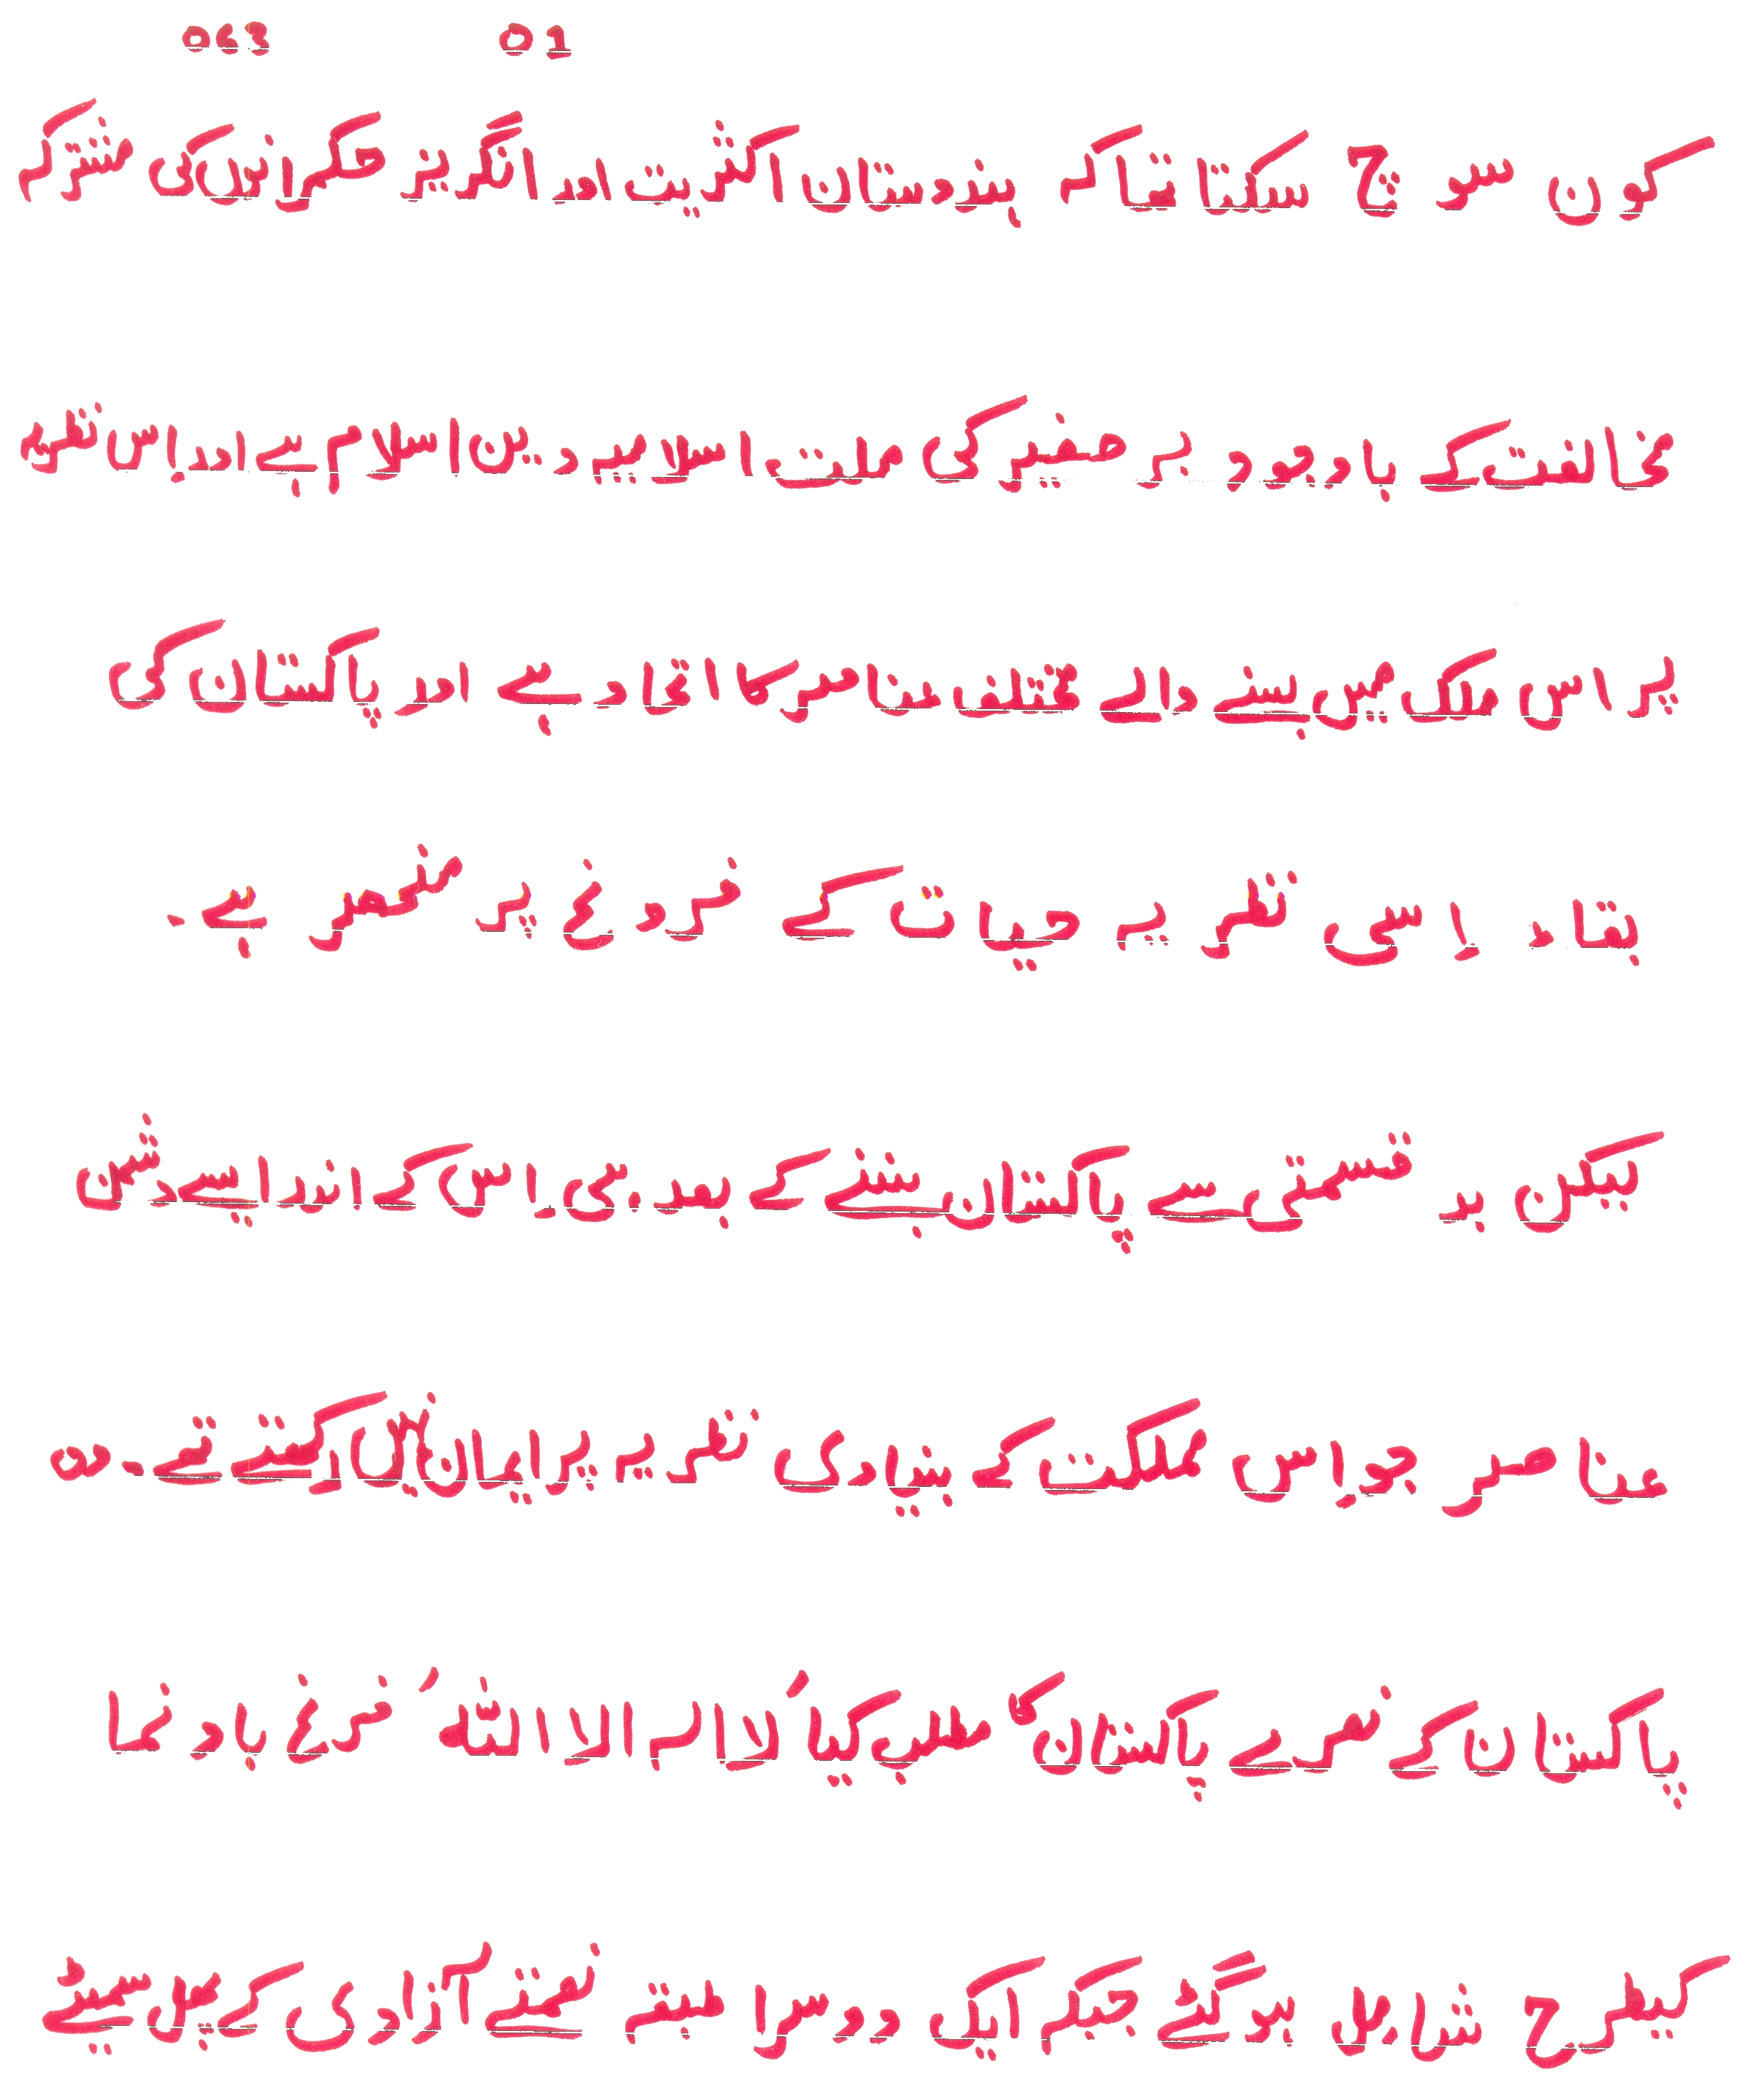 063 01
کون سوچ سکتا تھا کہ ہندوستان اکثریت اور انگریز حکمرانوں کی مشترکہ
مخالفت کے باوجود برصغیر کی ملت اسلامیہ دین اسلام ہے اور اِس نظریہ
پر اس ملک میں بسنے والے مختلف عناصر کا اتحاد ہے اور پاکستان کی
بقاء اِسی نظریہ حیات کے فروغ پر منحصر ہے۔
لیکن بد قسمتی سے پاکستان بننے کے بعد بھی اِس کے اندر ایسے دشمن
عناصر جو اِس مملکت کے بنیادی نظریہ پر ایمان نہیں رکھتے تھے۔ وہ
پاکستان کے نعرے پاکستان کا مطلب کیا ُلا الہ الا اللہ ُ فرغ باد نما
کیطرح شامل ہو گئے جبکہ ایک دوسرا طبقہ نعمتے آزادی کے پھل سمیٹے